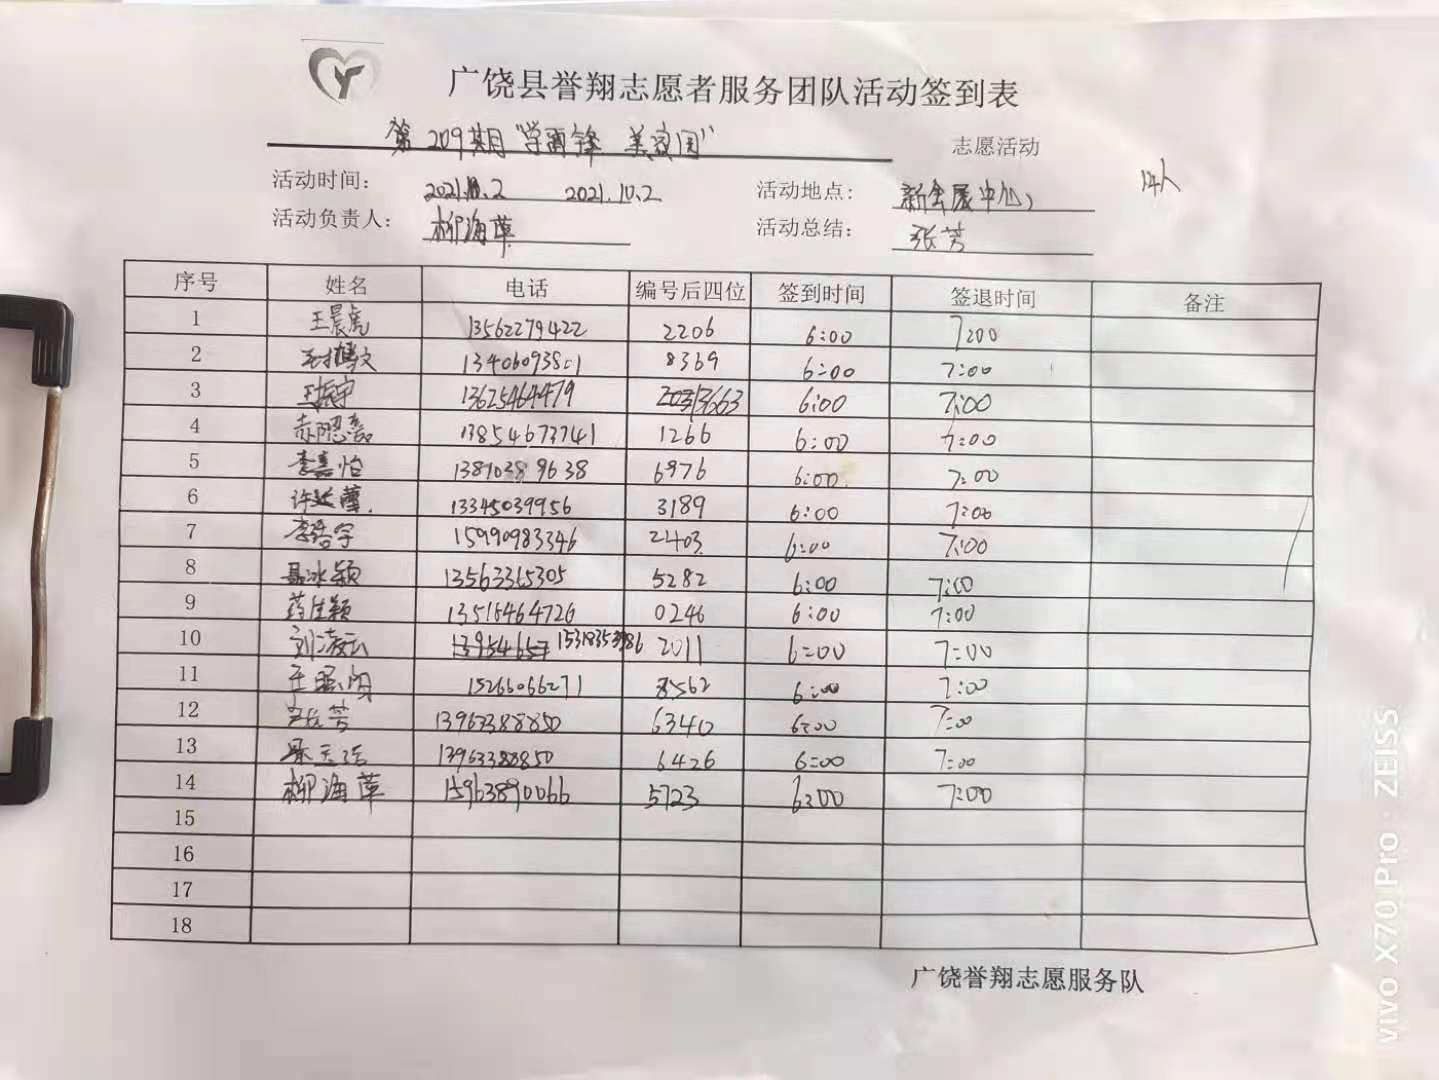 广饶县誉翔志愿者服务团队活动签到表
第209期"学雷锋 美家园" 志愿活动
14人
活动时间： 2021.10.2 2021.10.2 活动地点： 新会展中心
活动负责人： 柳海萍 活动总结： 张芳
序号 姓名 电话 编号后四位 签到时间 签退时间 备注
1 王晨虎 13562279422 2206 6:00 7:00
2 13406093801 8369 6:00 7:00
3 王振宇 13625464479 3663 6:00 7:00
4 13854673741 1266 6:00 7:00
5 李嘉怡 6976 6:00 7:00
6 许延萍 13345039956 3189 6:00 7:00
7 李浩宇 15990983346 2403 6:00 7:00
8 聂冰颖 13563365305 5282 6:00 7:00
9 13518464726 0246 6:00 7:00
10 刘凌云 2011 6:00 7:00
11 15266066271 8562 6:00 7:00
12 张芳 13963388850 6340 6:00 7:00
13 13963388850 6426 6:00 7:00
14 柳海萍 15963890066 5723 6:00 7:00
15
16
17
18
广饶誉翔志愿服务队
vivo X70 Pro · ZEISS